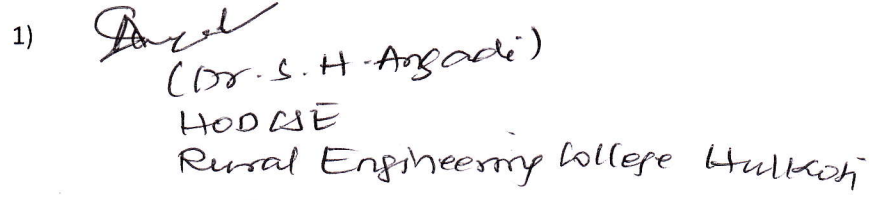 1)
(Dr. S. H. Angadi)
HOD CSE
Rural Engineering College Hulkoti